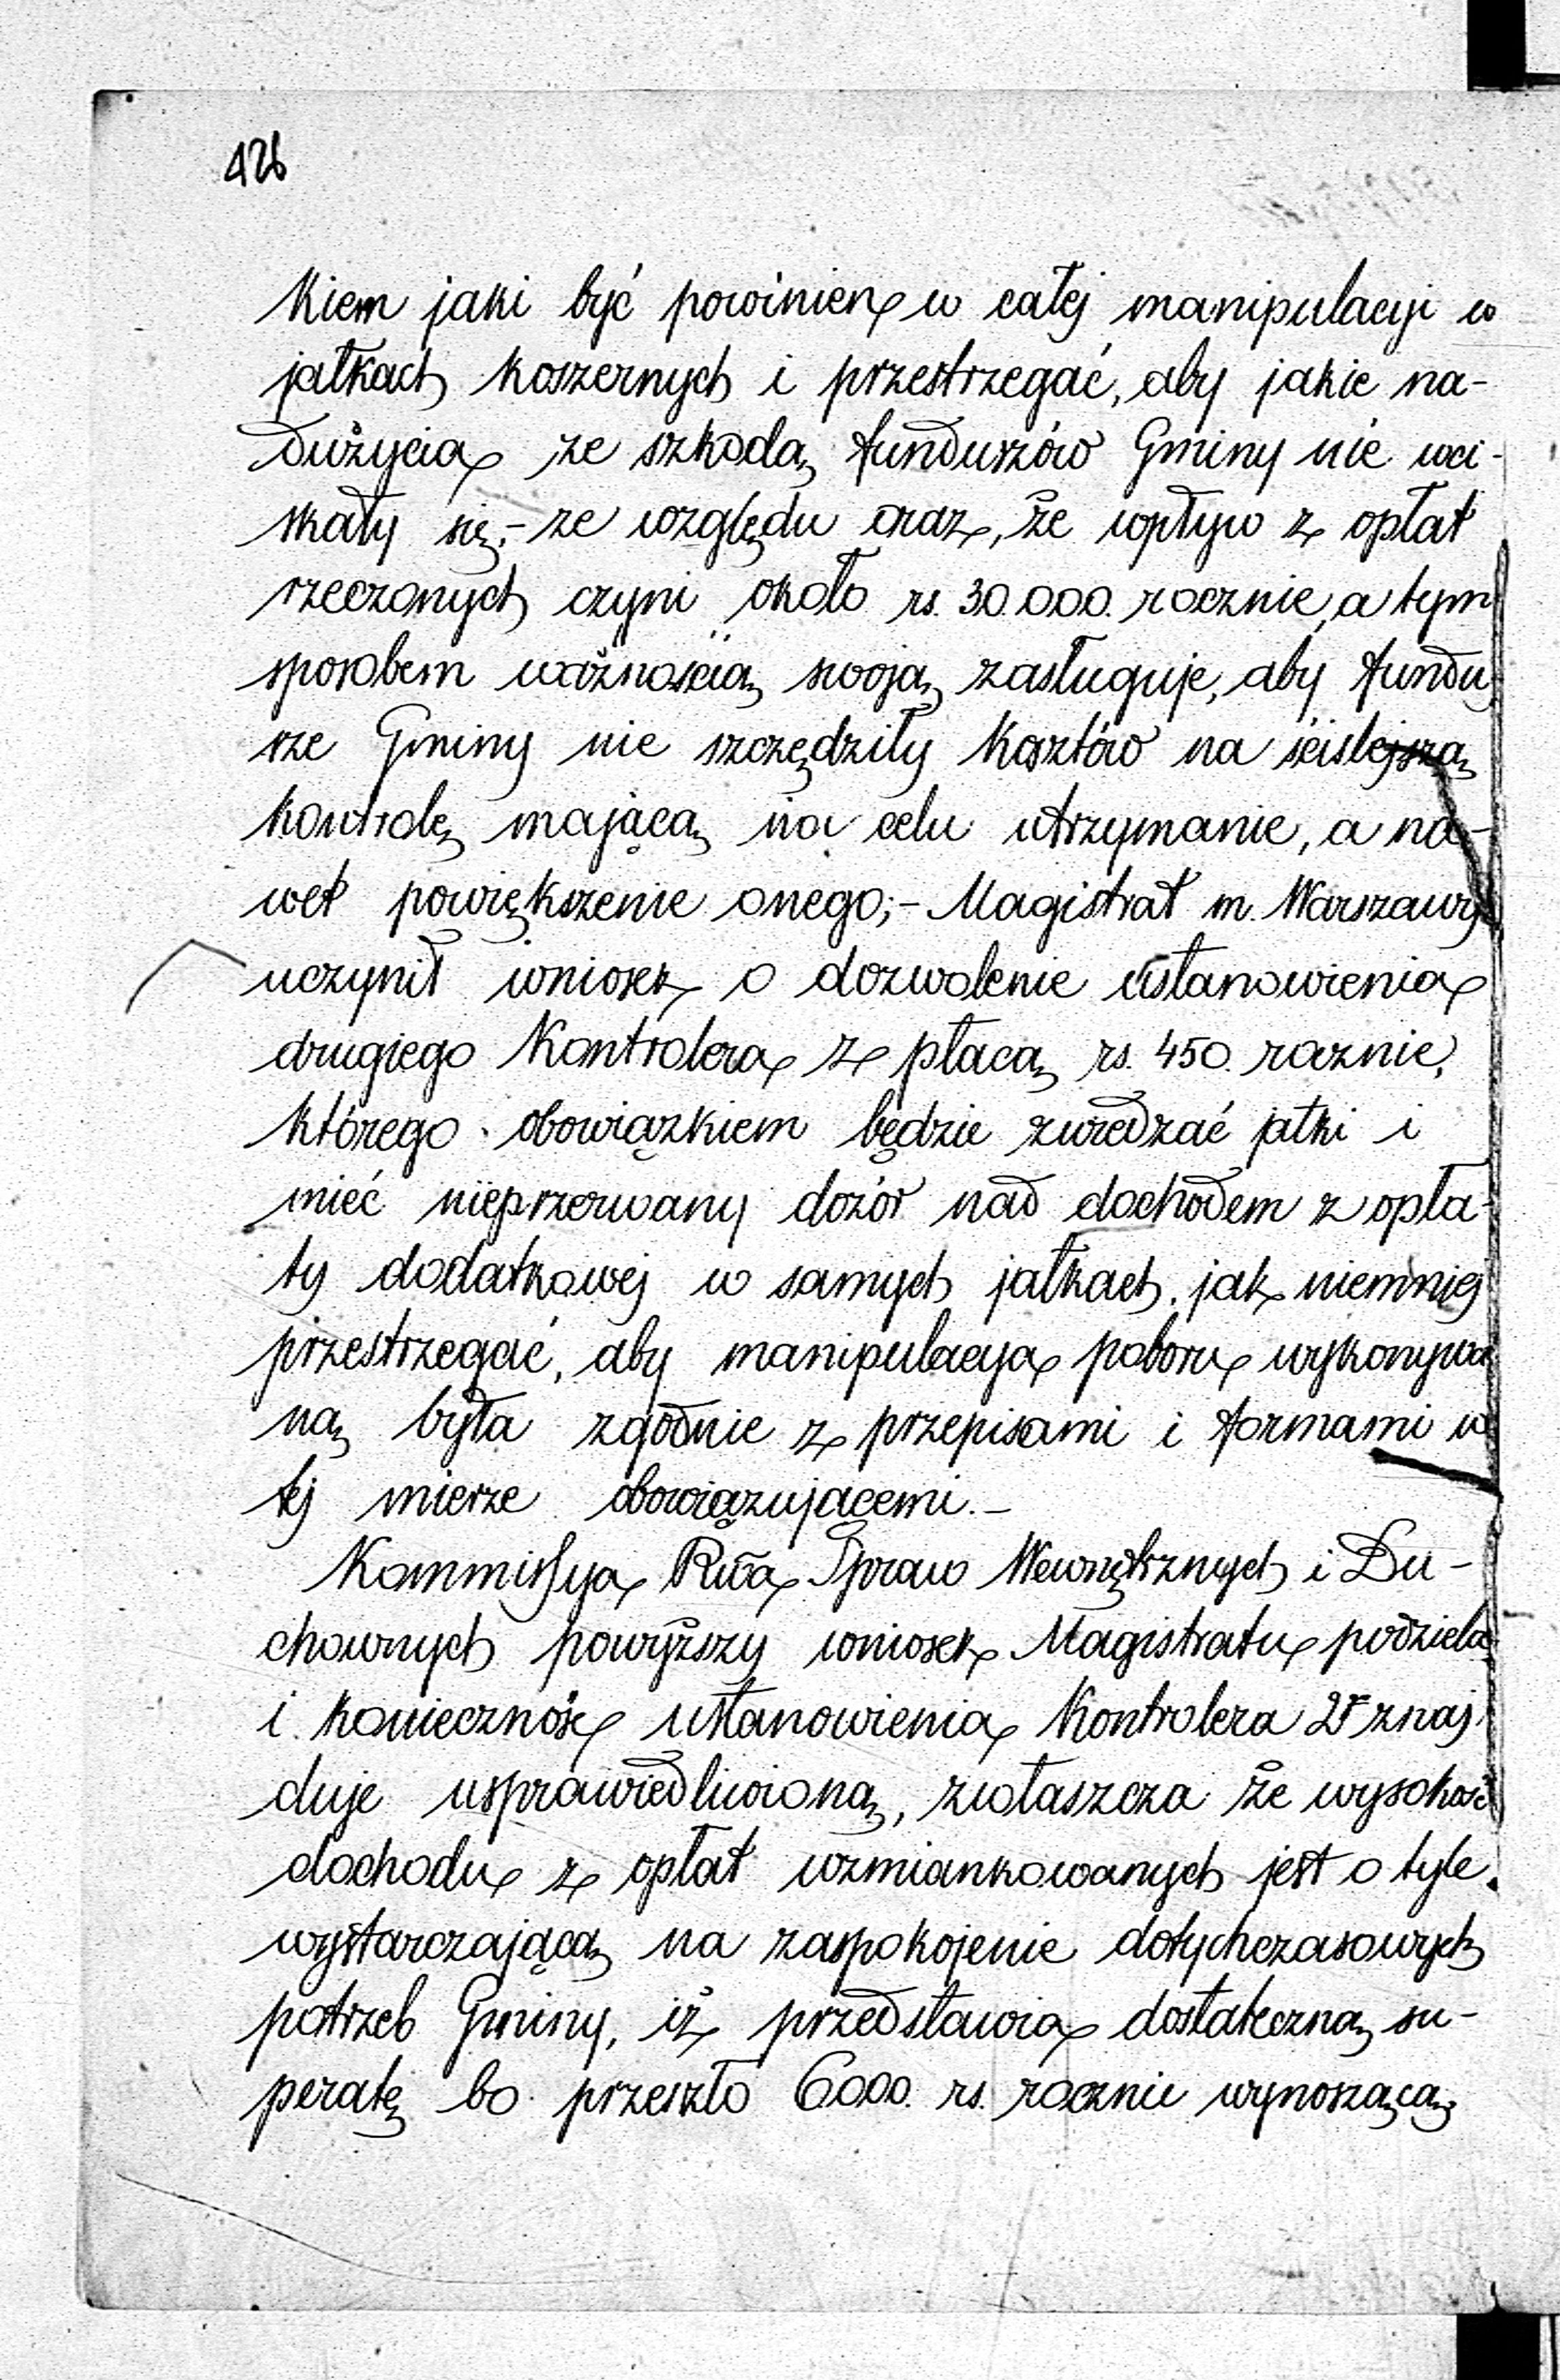 426
kiem jaki być powinien w całej manipulacyi w
jatkach koszernych i przestrzegać, aby jakie na-
dużycia ze szkodą funduszów Gminy nie wci-
skały się;- ze względu oraz, że wpływ z opłat
rzeczonych czyni około rs. 30.000. rocznie, a tym
sposobem ważnością swoją zasługuje, aby fundu
sze Gminy nie szczędziły kosztów na ściślejszą
kontrolę mającą na celu utrzymanie, a na-
wet powiększenie onego;- Magistrat m. Warszawy
uczynił wniosek o dozwolenie ustanowienia
drugiego Kontrolera z płacą rs. 450. rocznie,
którego obowiązkiem będzie zwiedzać jatki i
mieć nieprzerwany dozór nad dochodem z opła-
ty dodatkowej w samych jatkach, jak niemniej
przestrzegać, aby manipulacya poboru wykonywa
ną była zgodnie z przepisami i formami w
tej mierze obowiązującemi.-
Kommissya Rwa Spraw Wewnętrznych i Du-
chownych powyższy wniosek Magistratu podziela
i konieczność ustanowienia Kontrolera 2r znaj
duje usprawiedliwioną, zwłaszcza że wysokość
dochodu z opłat wzmiankowanych jest o tyle
wystarczającą na zaspokojenie dotychczasowych
potrzeb Gminy, iż przedstawia dostateczną su-
peratę bo przeszło 6000. rs. rocznie wynoszącą,